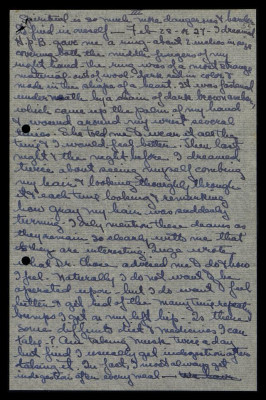 is so much more dangerous & harder
to find in myself — Feb - 28 - 1927 - I dreamed
H.P.B. gave me a ring about 2 inches in size
covering both the middle fingers of my
right hand. The ring was of a most strange
material sort of wood & dark red in color &
made in the shape of a heart. It was fastened
underneath by a chain of dark brown beads
which came up the palm of my hand
& wound around my wrist several
times. She told me to wear it all the
time & I would feel better. Then last
night & the night before I dreamed
twice about seeing myself combing
my hair & looking through
it & each time looking & remarking
how gray my hair was suddenly
turning. I only mention these dreams as
they remain so clearly with me that
they are interesting
Dr. advised me to do how
I feel. Naturally I do not want to be
operated upon - but I do want to feel
better & get rid of the many
I get as my left hip. Is there
some different diet & medicines I can
take? Am taking twice a day
but find I usually get indigestion after
taking it. In fact, I most always get
indigestion after every meal —